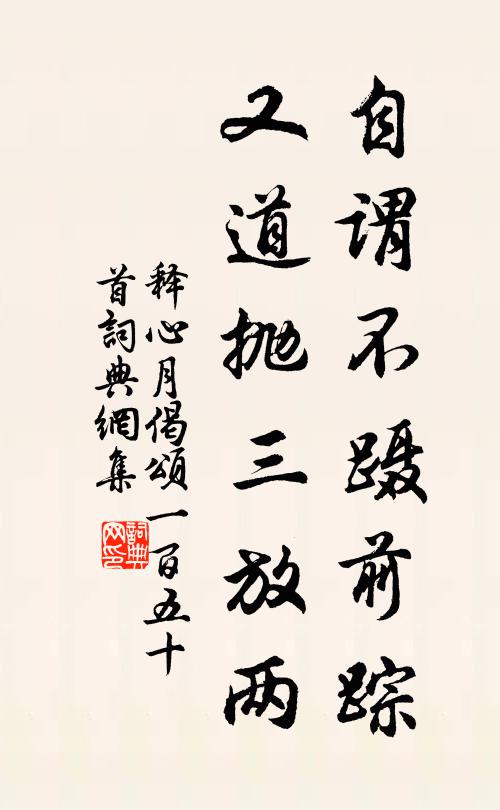 自谓不蹑前踪
又道抛三放两
释心月偈頌一百五十
首詞典網集
詞典
网印